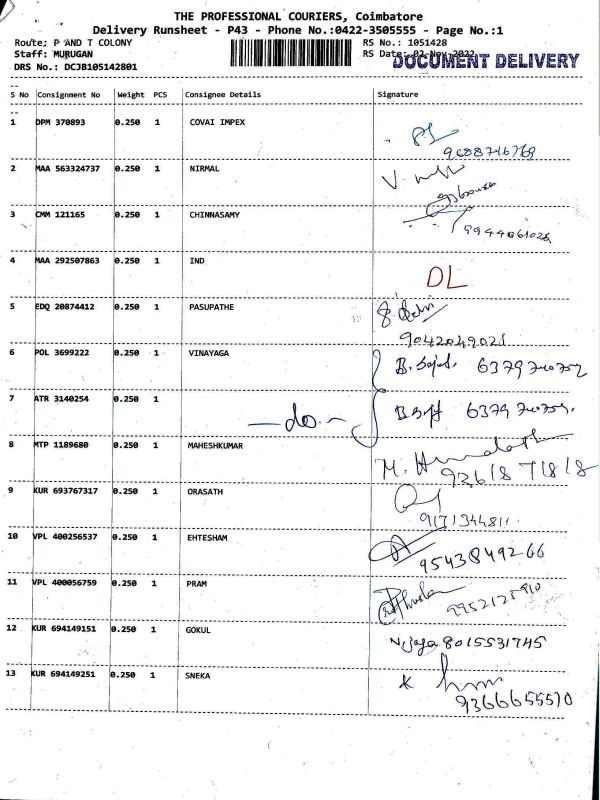 THE PROFESSIONAL COURIERS, Coimbatore
Delivery Runsheet - P43 - Phone No.:0422-3505555 - Page No.:1
Route; P AND T COLONY
RS No.: 1051428
Staff: MURUGAN
RS Date: 02-Nov-2022
DOCUMENT DELIVERY
DRS No.: DCJB105142801
S No Consignment No Weight PCS Consignee Details Signature
1 DPM 370893 0.250 1 COVAI IMPEX
2 MAA 563324737 0.250 1 NIRMAL
3 CMM 121165 0.250 1 CHINNASAMY
4 MAA 292507863 0.250 1 IND DL
5 EDQ 20874412 0.250 1 PASUPATHE
9042049021
6 POL 3699222 0.250 1 VINAYAGA
7 ATR 3140254 0.250 1 -do-
8 MTP 1189680 0.250 1 MAHESHKUMAR
9 KUR 693767317 0.250 1 ORASATH
9171344811
10 VPL 400256537 0.250 1 EHTESHAM 9543849266
11 VPL 400056759 0.250 1 PRAM
12 KUR 694149151 0.250 1 GOKUL 8015531745
13 KUR 694149251 0.250 1 SNEKA
9366655510